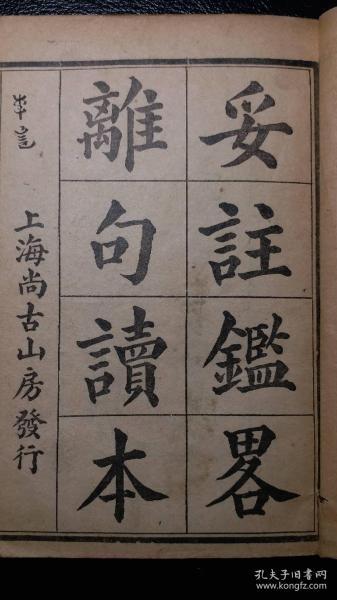 妥註鑑畧
離句讀本
上海尚古山房發行
孔夫子旧书网
www.kongfz.com